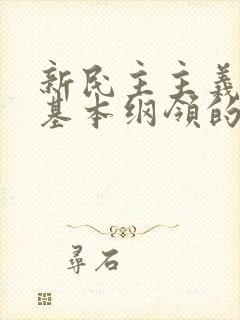 新民主主義
基本纲领的
尋石